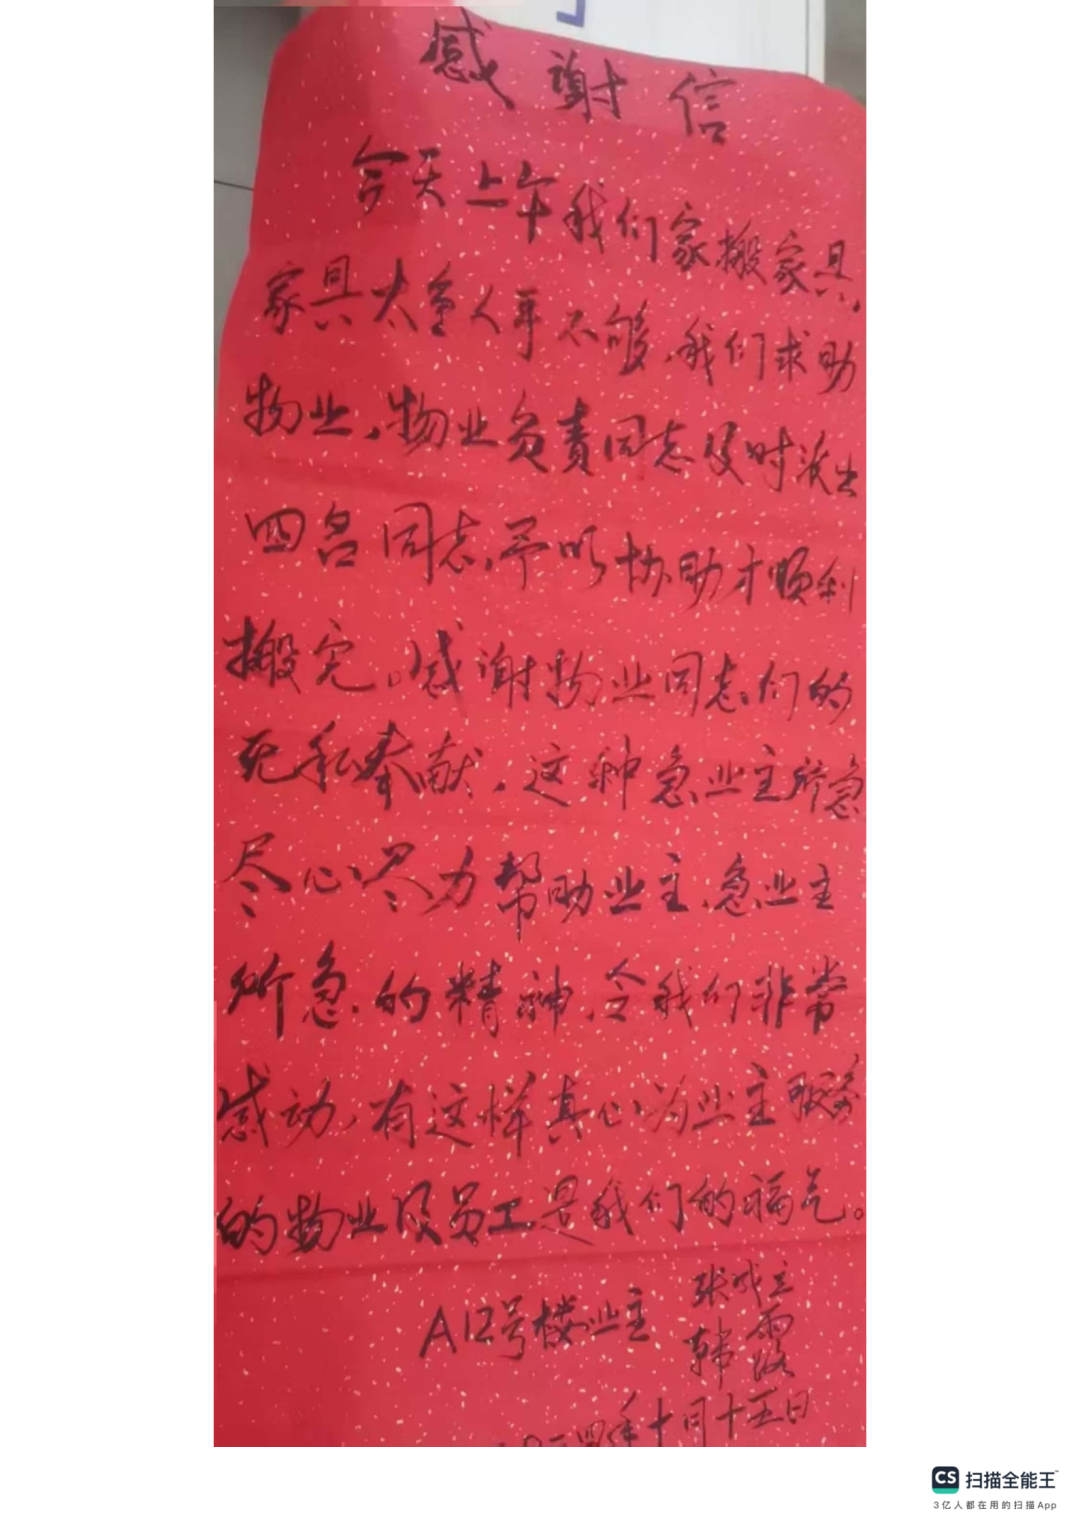 感谢信
今天上午我们家搬家具,
家具太重人手不够,我们求助
物业,物业负责同志及时派出
四名同志,予以协助才顺利
搬完。感谢物业同志们的
无私奉献,这种急业主所急
尽心尽力帮助业主,急业主
所急的精神,令我们非常
感动,有这样真心为业主服务
的物业及员工是我们的福气。
A12号楼业主 张成立
韩露
二四年十月十五日
CS 扫描全能王
3亿人都在用的扫描App